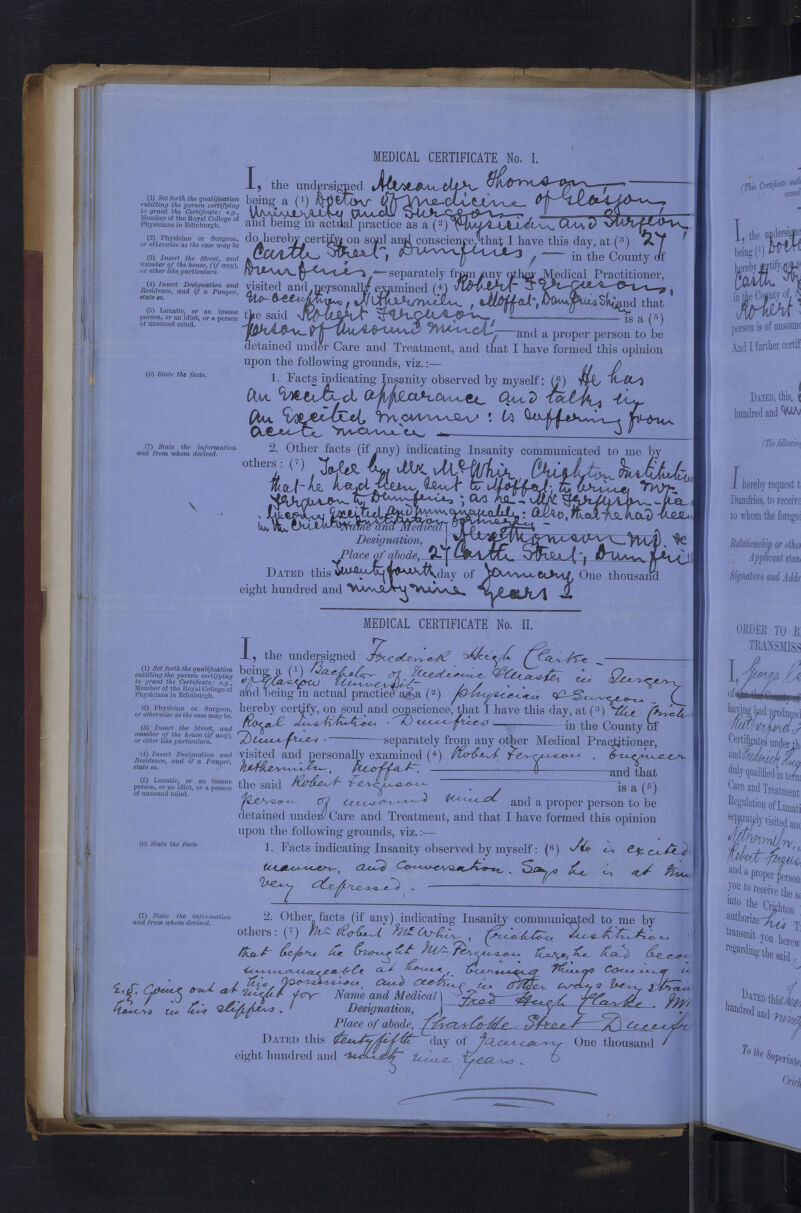 MEDICAL CERTIFICATE No. I.
I, the undersigned Alexander Thomson
being a (1) Doctor of Medicine of Glasgow
University and Surgeon
and being in actual practice as a (2) Physician and Surgeon
do hereby certify, on soul and conscience, that I have this day, at (3) 27
Castle Street, Dumfries, in the County of
Dumfries, separately from any other Medical Practitioner,
visited and personally examined (4) Robert Ferguson,
no occupation, Nethermiln, Moffat, Dumfries Shi and that
the said Robert Ferguson, is a (5)
person of unsound mind, and a proper person to be
detained under Care and Treatment, and that I have formed this opinion
upon the following grounds, viz.:—
1. Facts indicating Insanity observed by myself: (6) He has
an excited appearance and talks in
an excited manner: is suffering from
acute mania
2. Other facts (if any) indicating Insanity communicated to me by
others: (7) Mr McWhir, Crichton Institution
that he had been sent to Moffat, to bring Mr
Ferguson to Dumfries; as he - Mr Ferguson - ha
become excited and unmanageable: also, that he had bee
in the Crichton Institution formerly
Name and Medical Designation, Alex Thomson M.D. &c
Place of abode, 27 Castle Street, Dumfri
DATED this Twenty fourth day of January One thousand
eight hundred and ninety nine years
(1) Set forth the qualification
entitling the person certifying
to grant the Certificate: e.g.,
Member of the Royal College of
Physicians in Edinburgh.
(2) Physician or Surgeon,
or otherwise as the case may be
(3) Insert the Street, and
number of the house, (if any),
or other like particulars.
(4) Insert Designation and
Residence, and if a Pauper,
state so.
(5) Lunatic, or an insane
person, or an idiot, or a person
of unsound mind.
(6) State the facts.
(7) State the information
and from whom derived.
MEDICAL CERTIFICATE No. II.
I, the undersigned Frederick Hugh Clarke
being a (1) Bachelor of Medicine & Master in Surgery
of Glasgow University
and being in actual practice as a (2) physician & Surgeon
hereby certify, on soul and conscience, that I have this day, at (3) the Crich
Royal Institution. Dumfries in the County of
Dumfries. separately from any other Medical Practitioner,
visited and personally examined (4) Robert Ferguson, Engineer
Nethermiln, Moffat. and that
the said Robert Ferguson is a (5)
person of unsound mind and a proper person to be
detained under Care and Treatment, and that I have formed this opinion
upon the following grounds, viz.:—
1. Facts indicating Insanity observed by myself: (6) He is excited
manner, and conversation. Says he is at
very depressed.
2. Other facts (if any) indicating Insanity communicated to me by
others: (7) Mr Robert McWhir, Crichton Institution
that before he brought Mr Ferguson here, he had becom
unmanageable at home, burning things coming in
his possession, and acting in other ways very stran
e.g. Going out at night for
hours in his slippers.
Name and Medical Designation, Fred Hugh Clarke M
Place of abode, Charlotte Street Dumfr
DATED this twenty fifth day of January One thousand
eight hundred and ninety nine years.
(1) Set forth the qualification
entitling the person certifying
to grant the Certificate: e.g.,
Member of the Royal College of
Physicians in Edinburgh.
(2) Physician or Surgeon,
or otherwise as the case may be.
(3) Insert the Street, and
number of the house (if any),
or other like particulars.
(4) Insert Designation and
Residence, and if a Pauper,
state so.
(5) Lunatic, or an insane
person, or an idiot, or a person
of unsound mind.
(6) State the facts
(7) State the information
and from whom derived.
(This Certificate
I, the undersigne
being (1) Doct
hereby certify, on s
Castle St
in the County of,
Robert
person is of unsoun
And I further certif
DATED, this,
hundred and
(The following
I hereby request t
Dumfries, to receive
to whom the forego
Relationship or othe
Applicant stan
Signature and Addr
ORDER TO B
TRANSMISS
I, George
having had produced
Certificates under th
and Frederick Hug
duly qualified in term
Care and Treatment
Regulation of Lunati
separately visited and
Nethermiln,
Robert Fergus
and a proper person
you to receive the s
into the Crichton
authorize his T
transmit you herew
regarding the said
DATED this
hundred and ninety
To the Superinte
Crich